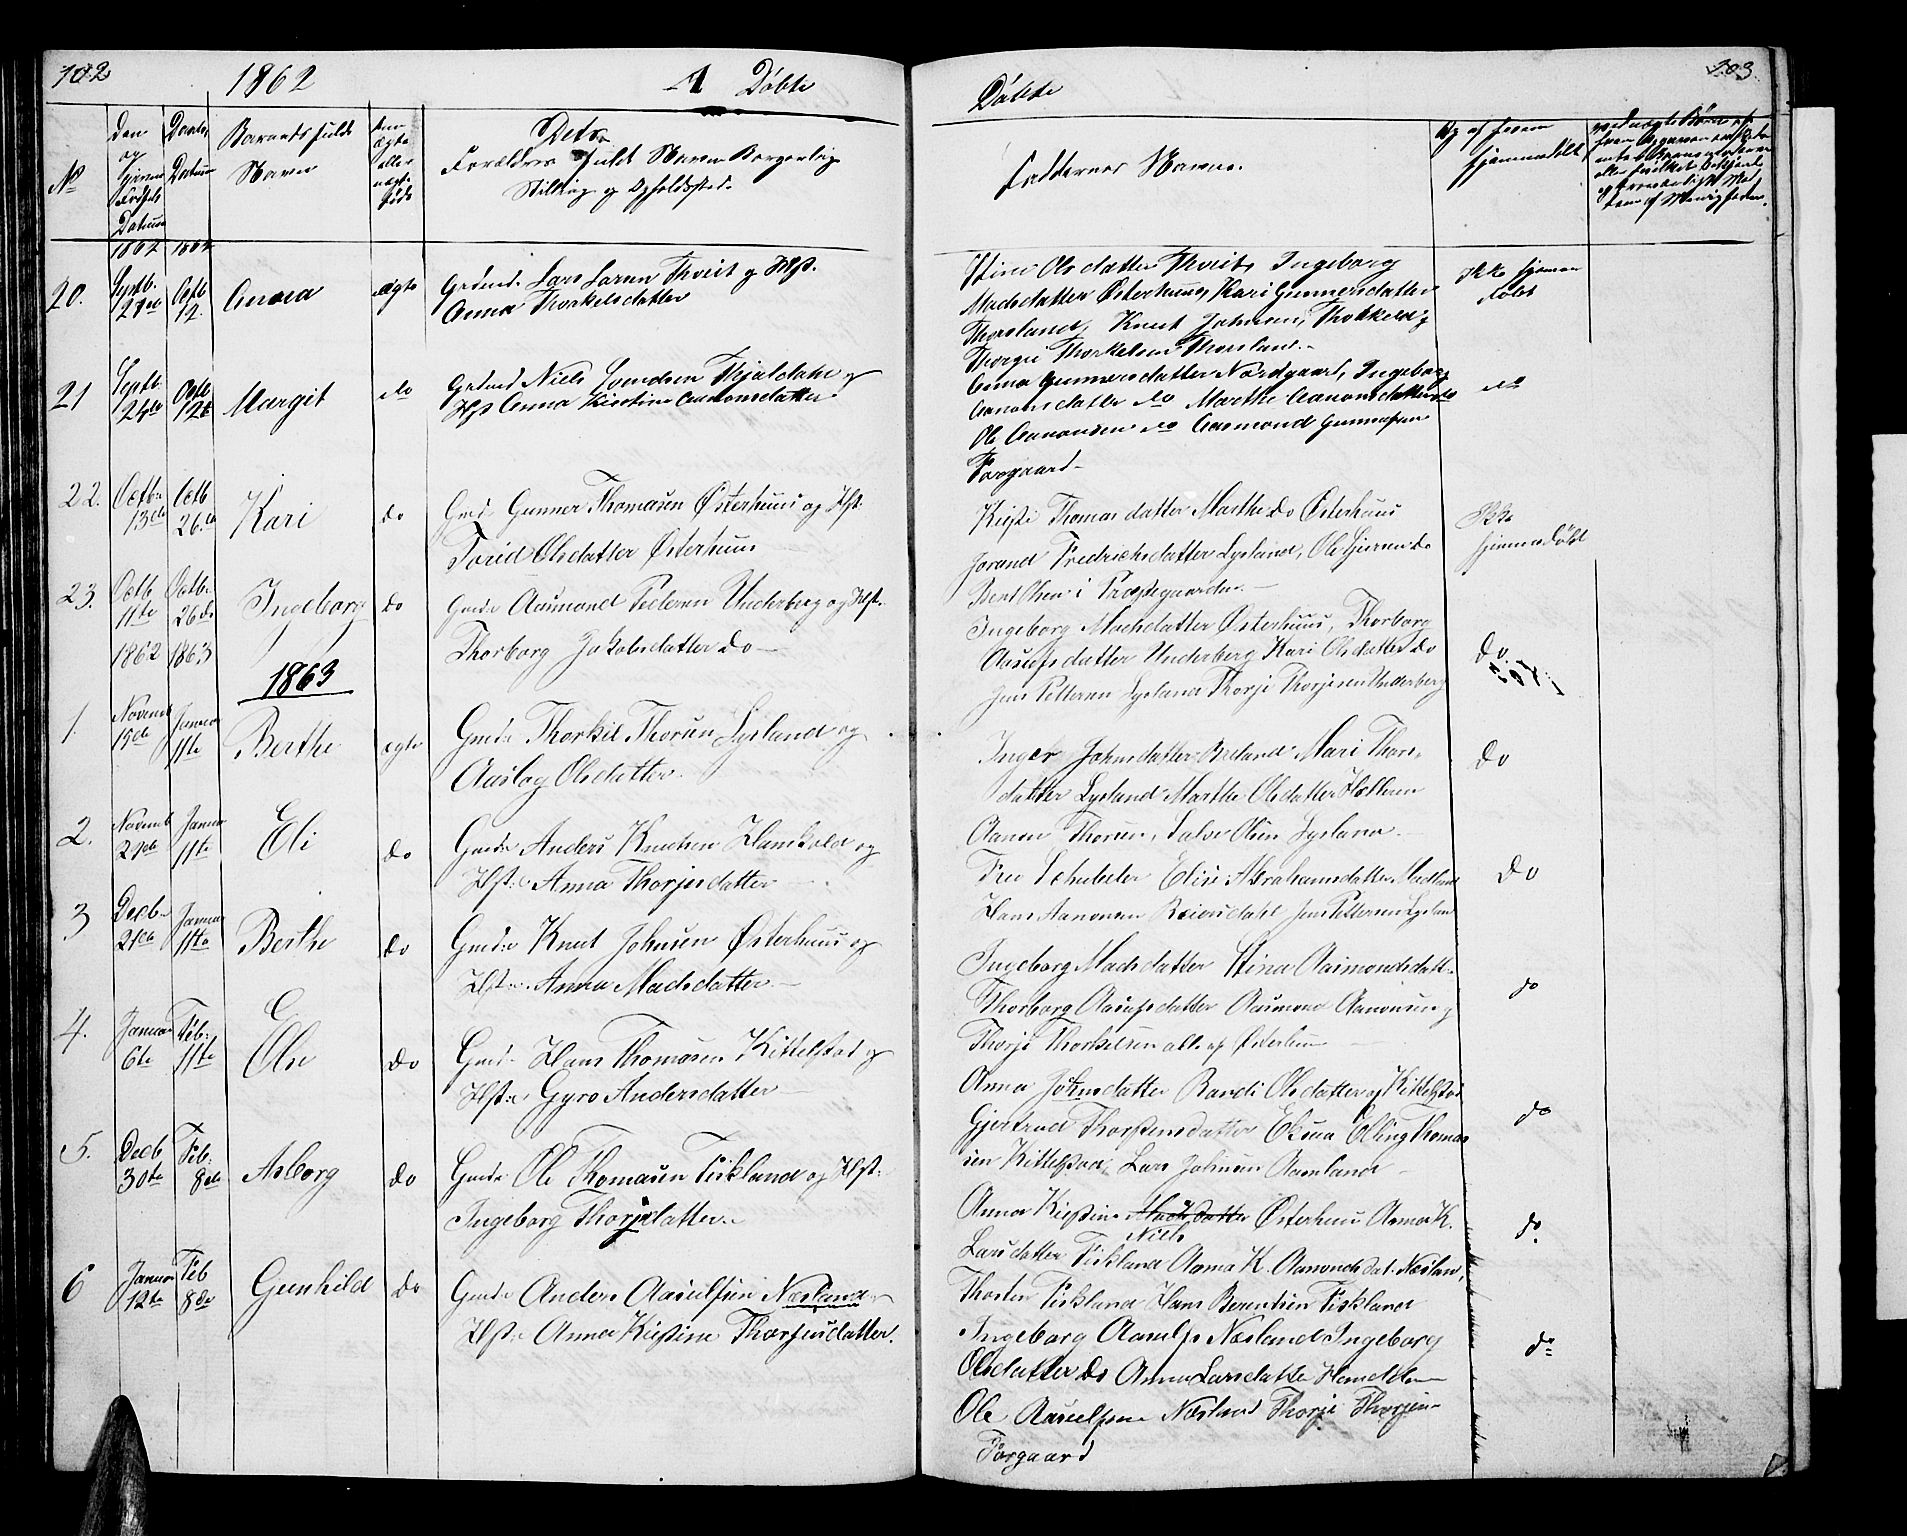 102
1862
A Døbte
No
Den og Gjenns Fødsels Datum
Daabs Datum
Barnets fulde Navn
Om ægte eller uægte født
Dets
Forældres fuldt Navn Borgerlig
Stilling og Opholdssted.
1862 1862
20. Septb. 27de Octb 12. Anna ægte Grdmd. Lars Larsen Thveit og Hst.
Anna Thorkelsdatter
21 Septb. 24de Octb 12te Margit do Grdmd Niels Svendsen Fjeldahl og
Hst Anna Kirstine Aanonsdatter
22. Octbr 13de Octb 26de Kari do Gmd. Gunner Thomasen Østerhuus og Hst.
Torid Olsdatter Østerhuus
23. Octb. 11te Octbr. 26de Ingeborg do Gmd. Aasmond Pedersen Underberg og Hst.
1862 1863 Thorborg Jakobsdatter do
1863
1. Novemb 19de Januar 11te Berthe ægte Gmd. Thorkil Thorsen Lysland og
Aaslog Olsdatter.
2. Novemb 21de Januar 11te Eli do Gmd. Anders Knudsen og
Hst. Anna Thorjesdatter
3 Decb. 21de Januar 11te Berthe do Gmd. Knut Johnsen Østerhuus og
Hst. Anna Madsdatter
4. Januar 6te Feb. 11te Else do Gmd. Hans Thomasen Kittelstad og
Hst. Gyro Andersdatter
5. Decb 30te Feb. 8de Asborg do Gmd. Ole Thomasen Fiskland og Hst.
Ingeborg Thorjesdatter
6 Januar 12te Feb 8de Gunhild do Gmd. Anders Aasulfsen Næsland
Hst. Anna Kirstine Thorjusdatter.
103.
Døbte
Faddernes Navne.
Og af hvem hjemmedøbt
Stine Olsdatter Thveit, Ingeborg
Madsdatter Østerhuus, Kari Gunnersdatter
Thorsland, Knut Johnsen, Thorkeld og
Thorgie Thorkelsen Thorsland.
ikke hjemmedøbt
Anna Gunnersdatter Nordgaard, Ingeborg
Aanonsdatter do Marthe Aanonsdatter do
Ole Aanonsen do Aasmond Gunnersen
Forgaard
do
Kirsti Thomasdatter Marthe do Østerhuus
Jorand Fredrichsdatter Lysland, Ole do
Bent Olsen i Præstegaarden.
Ikke hjemmedøbt
Ingeborg Madsdatter Østerhuus, Thorborg
Aasulfsdatter Underberg Kari Olsdatter do
Jens Pettersen Lysland Thorje Thorjesen Underberg
do. 1863
Inger Johnsdatter Mari Thors-
datter Lysland Marthe Olsdatter
Aanon Thorsen, Salve Olsen Lysland.
do
Fru Schubeler Elise Abrahamsdatter
Hans Aanonsen Jens Pettersen Lysland
do
Ingeborg Madsdatter Stina Aasmondsdatt.
Thorborg Aasulfsdatter Aasmond Aanonsen og
Thorje Thorkilsen alle af Østerhuus
do
Anna Johnsdatter Randi Olsdatter af Kittelstad
Gjertrud Thorstensdatter Elling Thomas-
sen Kittelstad, Lars Johnsen Aamland
do
Anna Kirstine Madsdatter Niels Østerhuus Anna K.
Larsdatter Fiskland Anna K. Aamondsdat. Næsland,
Thorsten Fiskland Hans Berentsen Fiskland
do.
Ingeborg Aasulfs Næsland Ingeborg
Olsdatter do Anna Larsdatter
Ole Aasulfsen Næsland Thorje Thorjesen
Forgaard
do